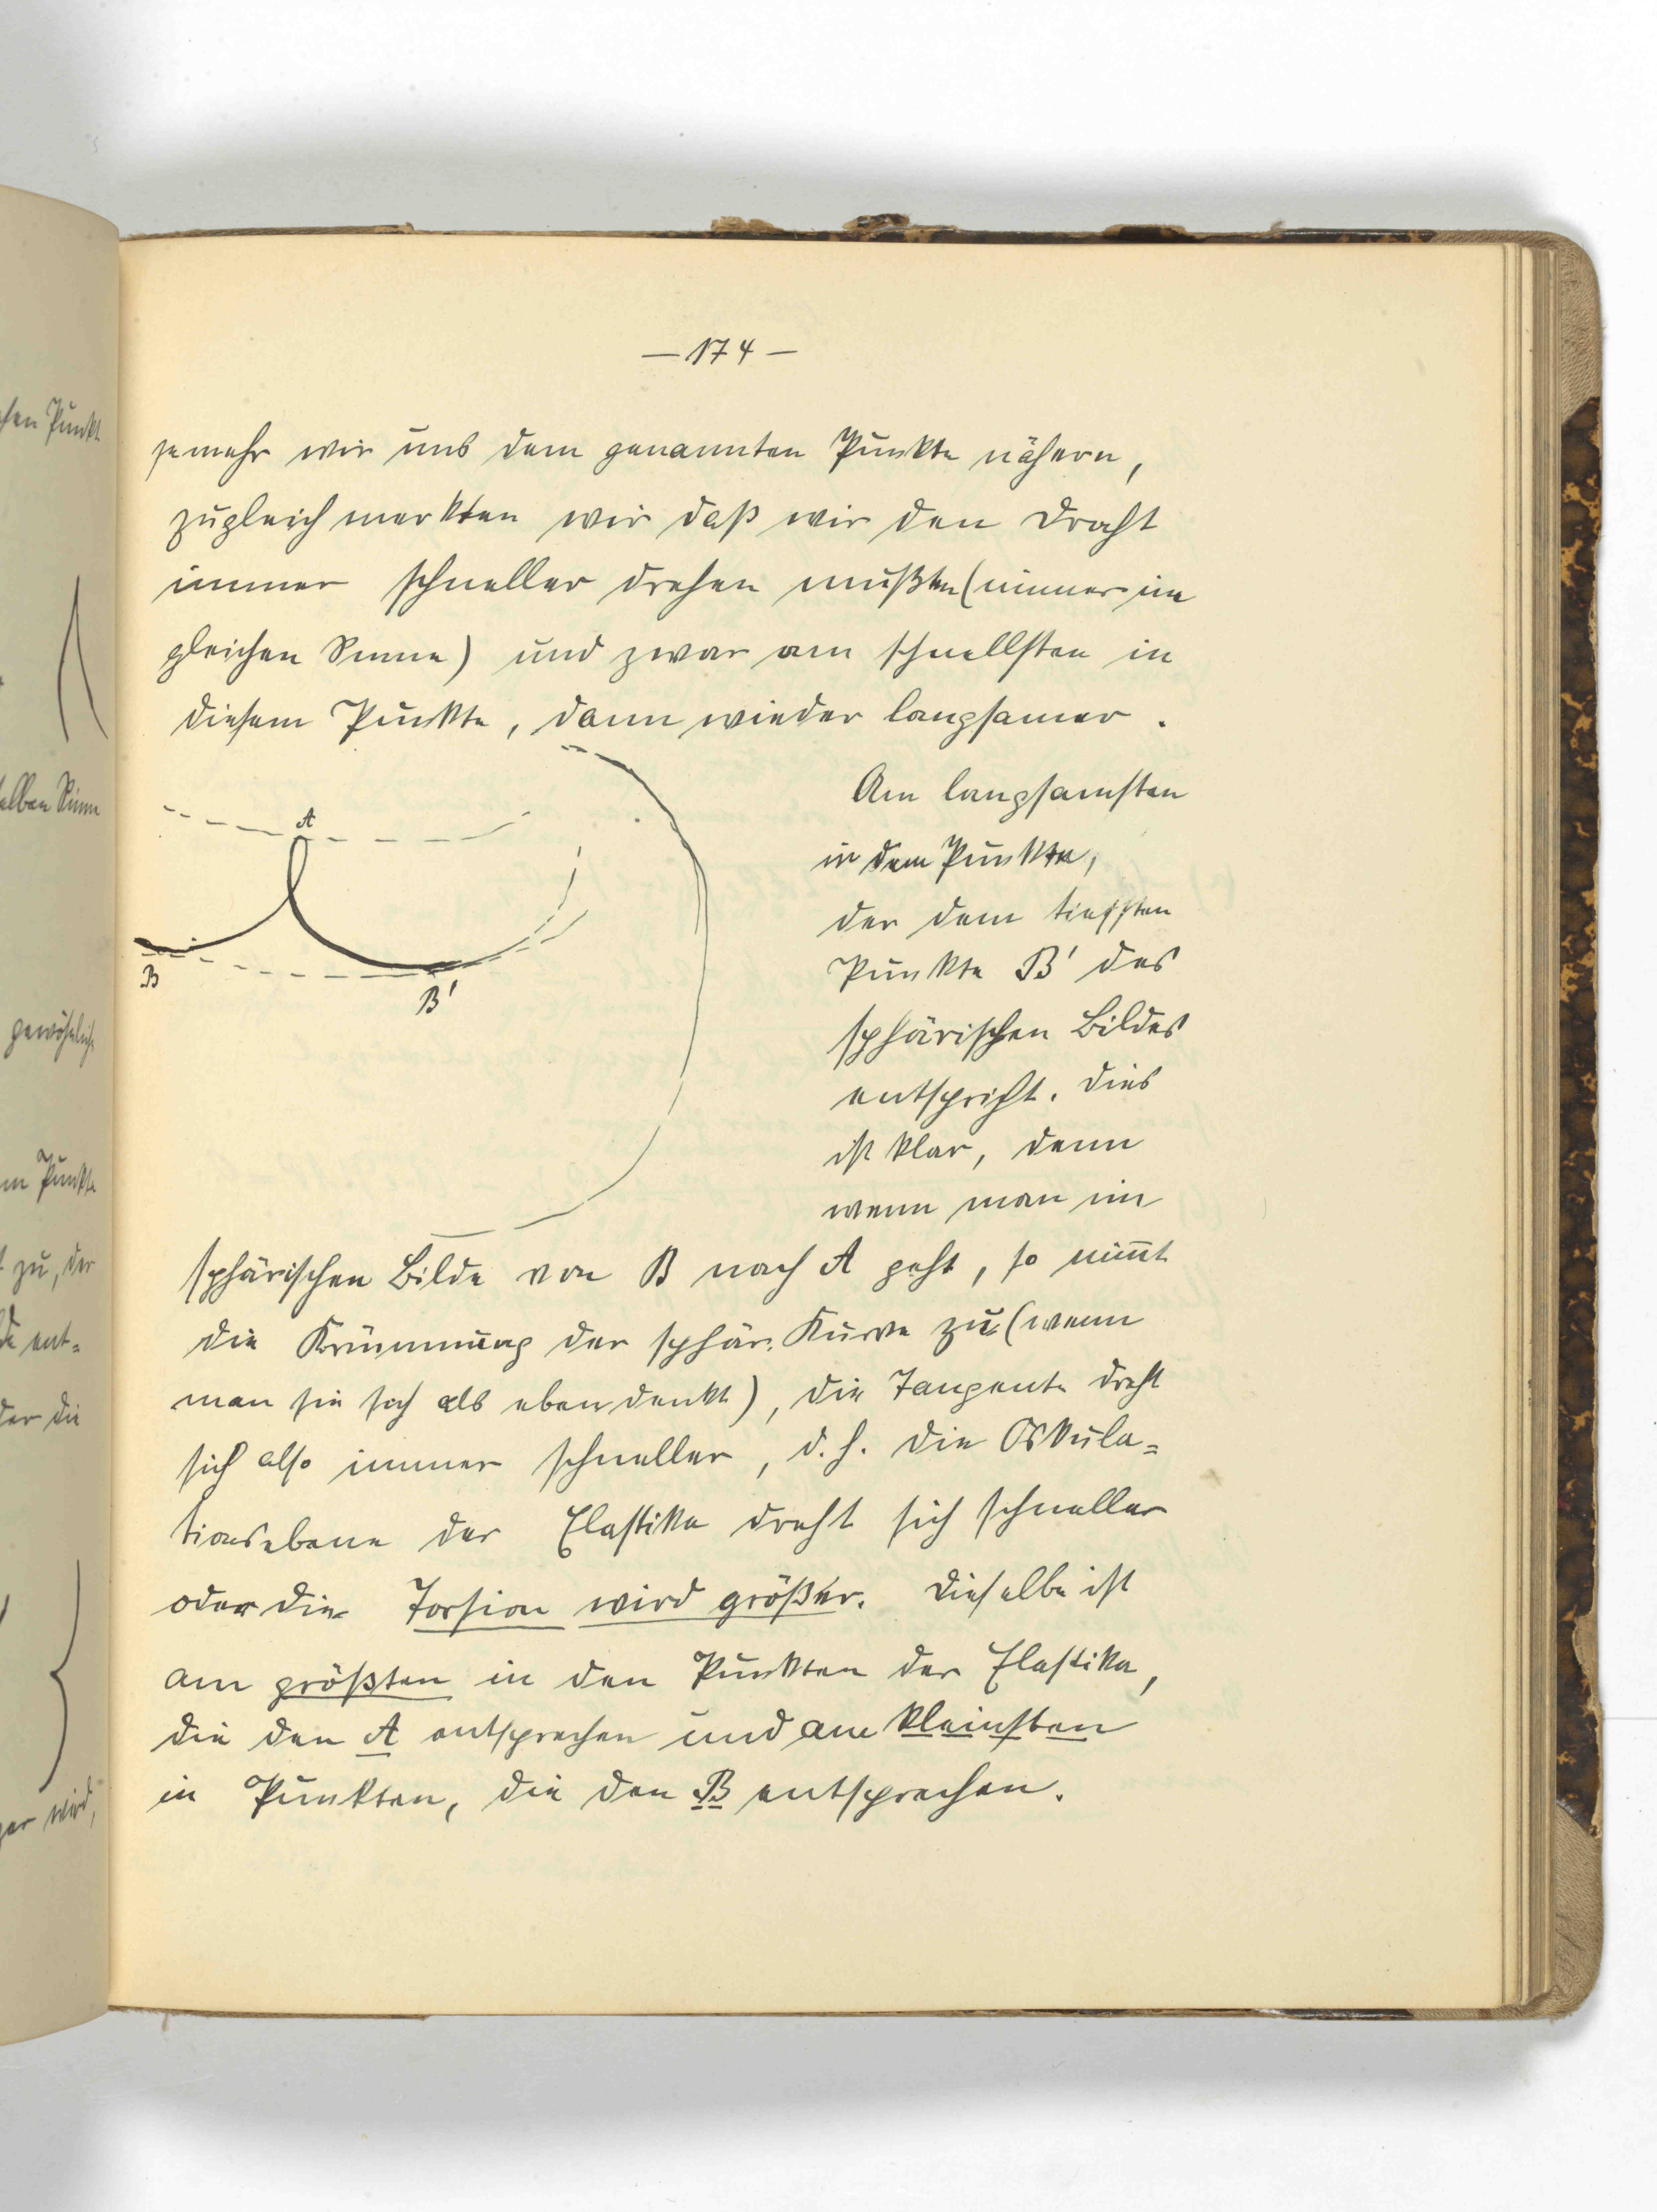 — 174 —
jemehr wir uns dem genannten Punkte nähern,
zugleich merkten wir daß wir den Draht
immer schneller drehen mußten (immer im
gleichen Sinne) und zwar am schnellsten in
diesem Punkte, dann wieder langsamer.
Am langsamsten
in dem Punkte,
der dem tiefsten
Punkte B' des
sphärischen Bildes
entspricht. Dies
ist klar, denn
wenn man im
A
B
B'
sphärischen Bilde von B nach A geht, so nim̅t
die Krümmung der sphär. Kurve zu (wenn
man sie sich als eben denkt), die Tangente dreht
sich also immer schneller, d. h. die Oskula=
tionsebene der Elastika dreht sich schneller
oder die Torsion wird größer. Dieselbe ist
am größten in den Punkten der Elastika,
die den A entsprechen und am kleinsten
in Punkten, die den B entsprechen.
Punkt
selben Sinne
gewöhnlich
Punkte
zu, der
ent=
der die
wird,